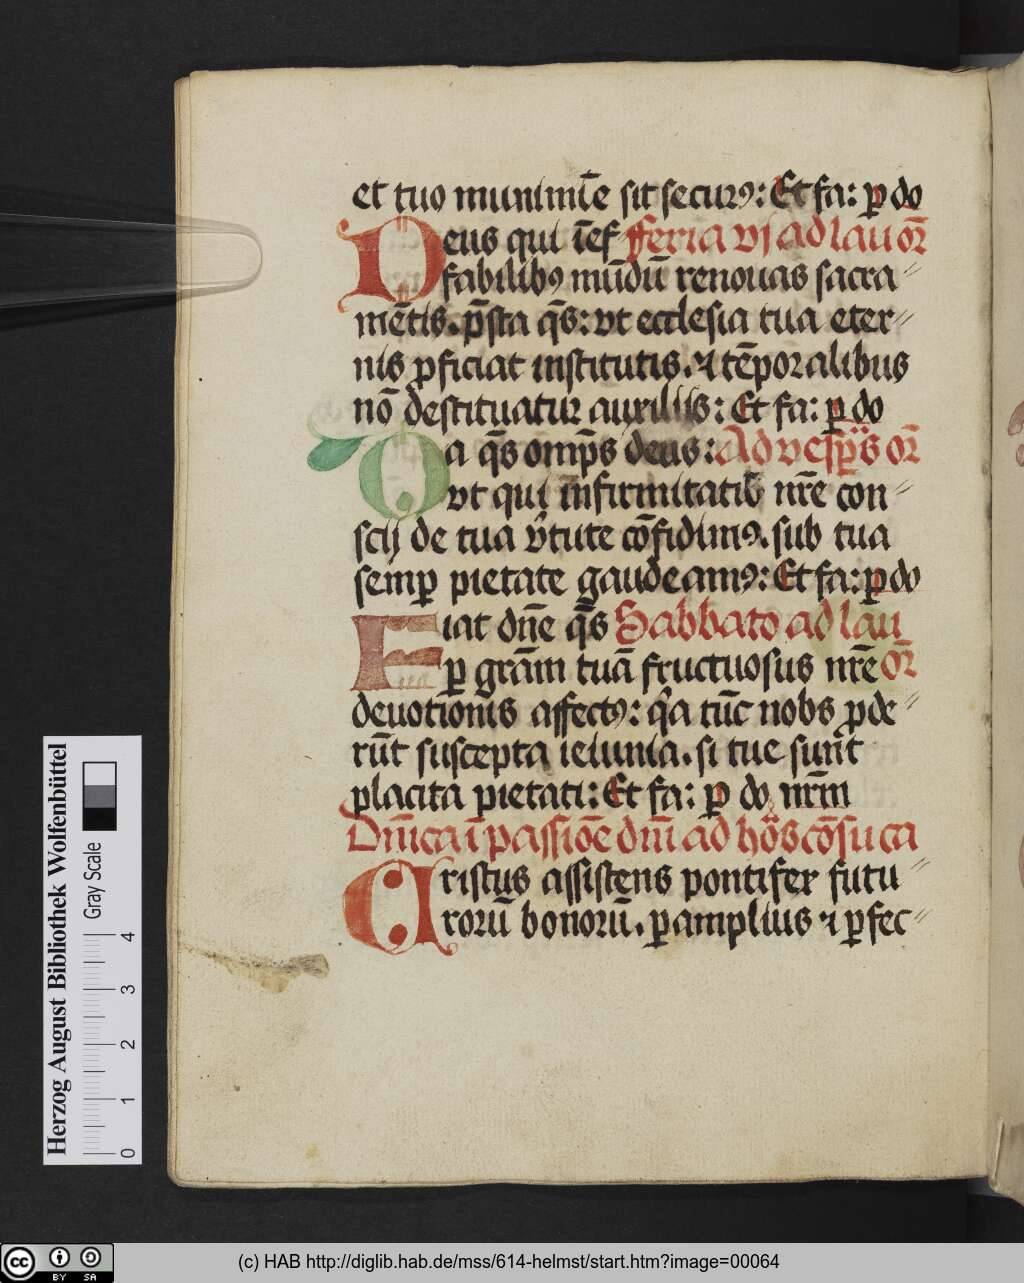 et tuo munimīe sit securꝯ: Et fa: ꝑ do
Deus qui īef feria vj ad lau or̄
fabilibꝯ mūdū renouas sacra
mētis. p̄sta q̄s: vt ecclesia tua eter
nis ꝓficiat institutis. ⁊ tēporalibus
nō destituatur auxiliis: Et fa: ꝑ do
Da q̄s omp̄s deus: Ad vesp̄s or̄
vt qui infirmitatib nr̄e con
scij de tua v̄tute cōfidimꝯ. sub tua
semp pietate gaudeamꝯ: Et fa: ꝑ do
Fiat dn̄e q̄s Sabbato ad lau
ꝑ grām tuā fructuosus nr̄e or̄
deuotionis affectꝯ: q̄a tūc nobs ꝓde
rūt suscepta ieiunia. si tue sunt
placita pietati: Et fa: ꝑ do nr̄m
Dn̄ica ī passiōe dn̄i ad hōs cōsuēta
Cristus assistens pontifex futu
rorū bonorū. ꝑ amplius ⁊ ꝑfec
Herzog August Bibliothek Wolfenbüttel
Gray Scale
0 1 2 3 4
cc BY SA
(c) HAB http://diglib.hab.de/mss/614-helmst/start.htm?image=00064